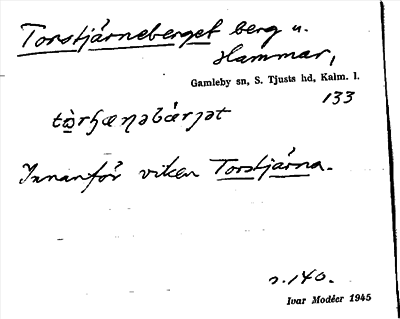 Torstjärneberget berg u.
Hammar,
Gamleby sn, S. Tjusts hd, Kalm. l.
133
Innanför viken Torstjärna.
s. 140.
Ivar Modéer 1945